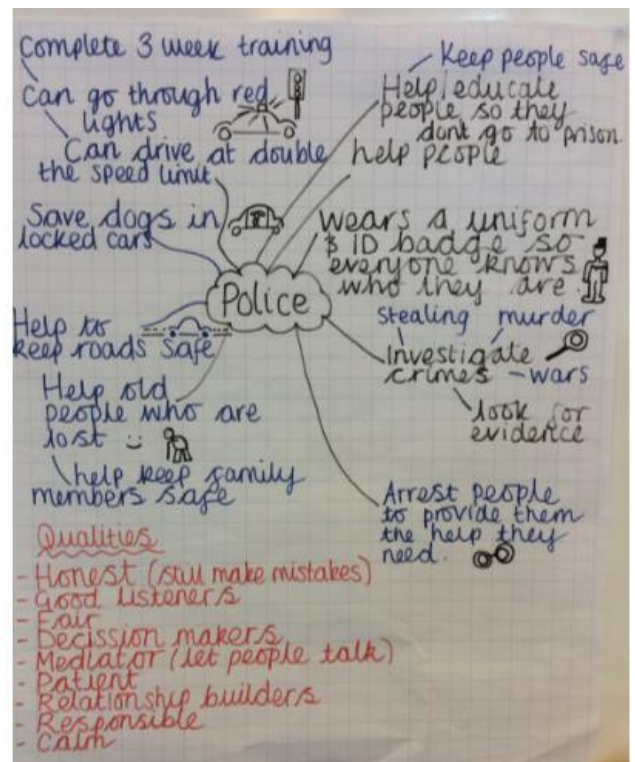 Complete 3 week training
Can go through red
lights
Can drive at double
the speed limit
Save dogs in
locked cars
Help to
keep roads safe
Help old
people who are
lost
help keep family
members safe
Police
Keep people safe
Help/educate
people so they
dont go to prison.
help people
wears a uniform
& ID badge so
everyone knows
who they are.
Stealing murder
Investigate
crimes - wars
look for
evidence
Arrest people
to provide them
the help they
need.
Qualities
- Honest (still make mistakes)
- Good listeners
- Fair
- Decission makers
- Mediator (let people talk)
- Patient
- Relationship builders
- Responsible
- Calm